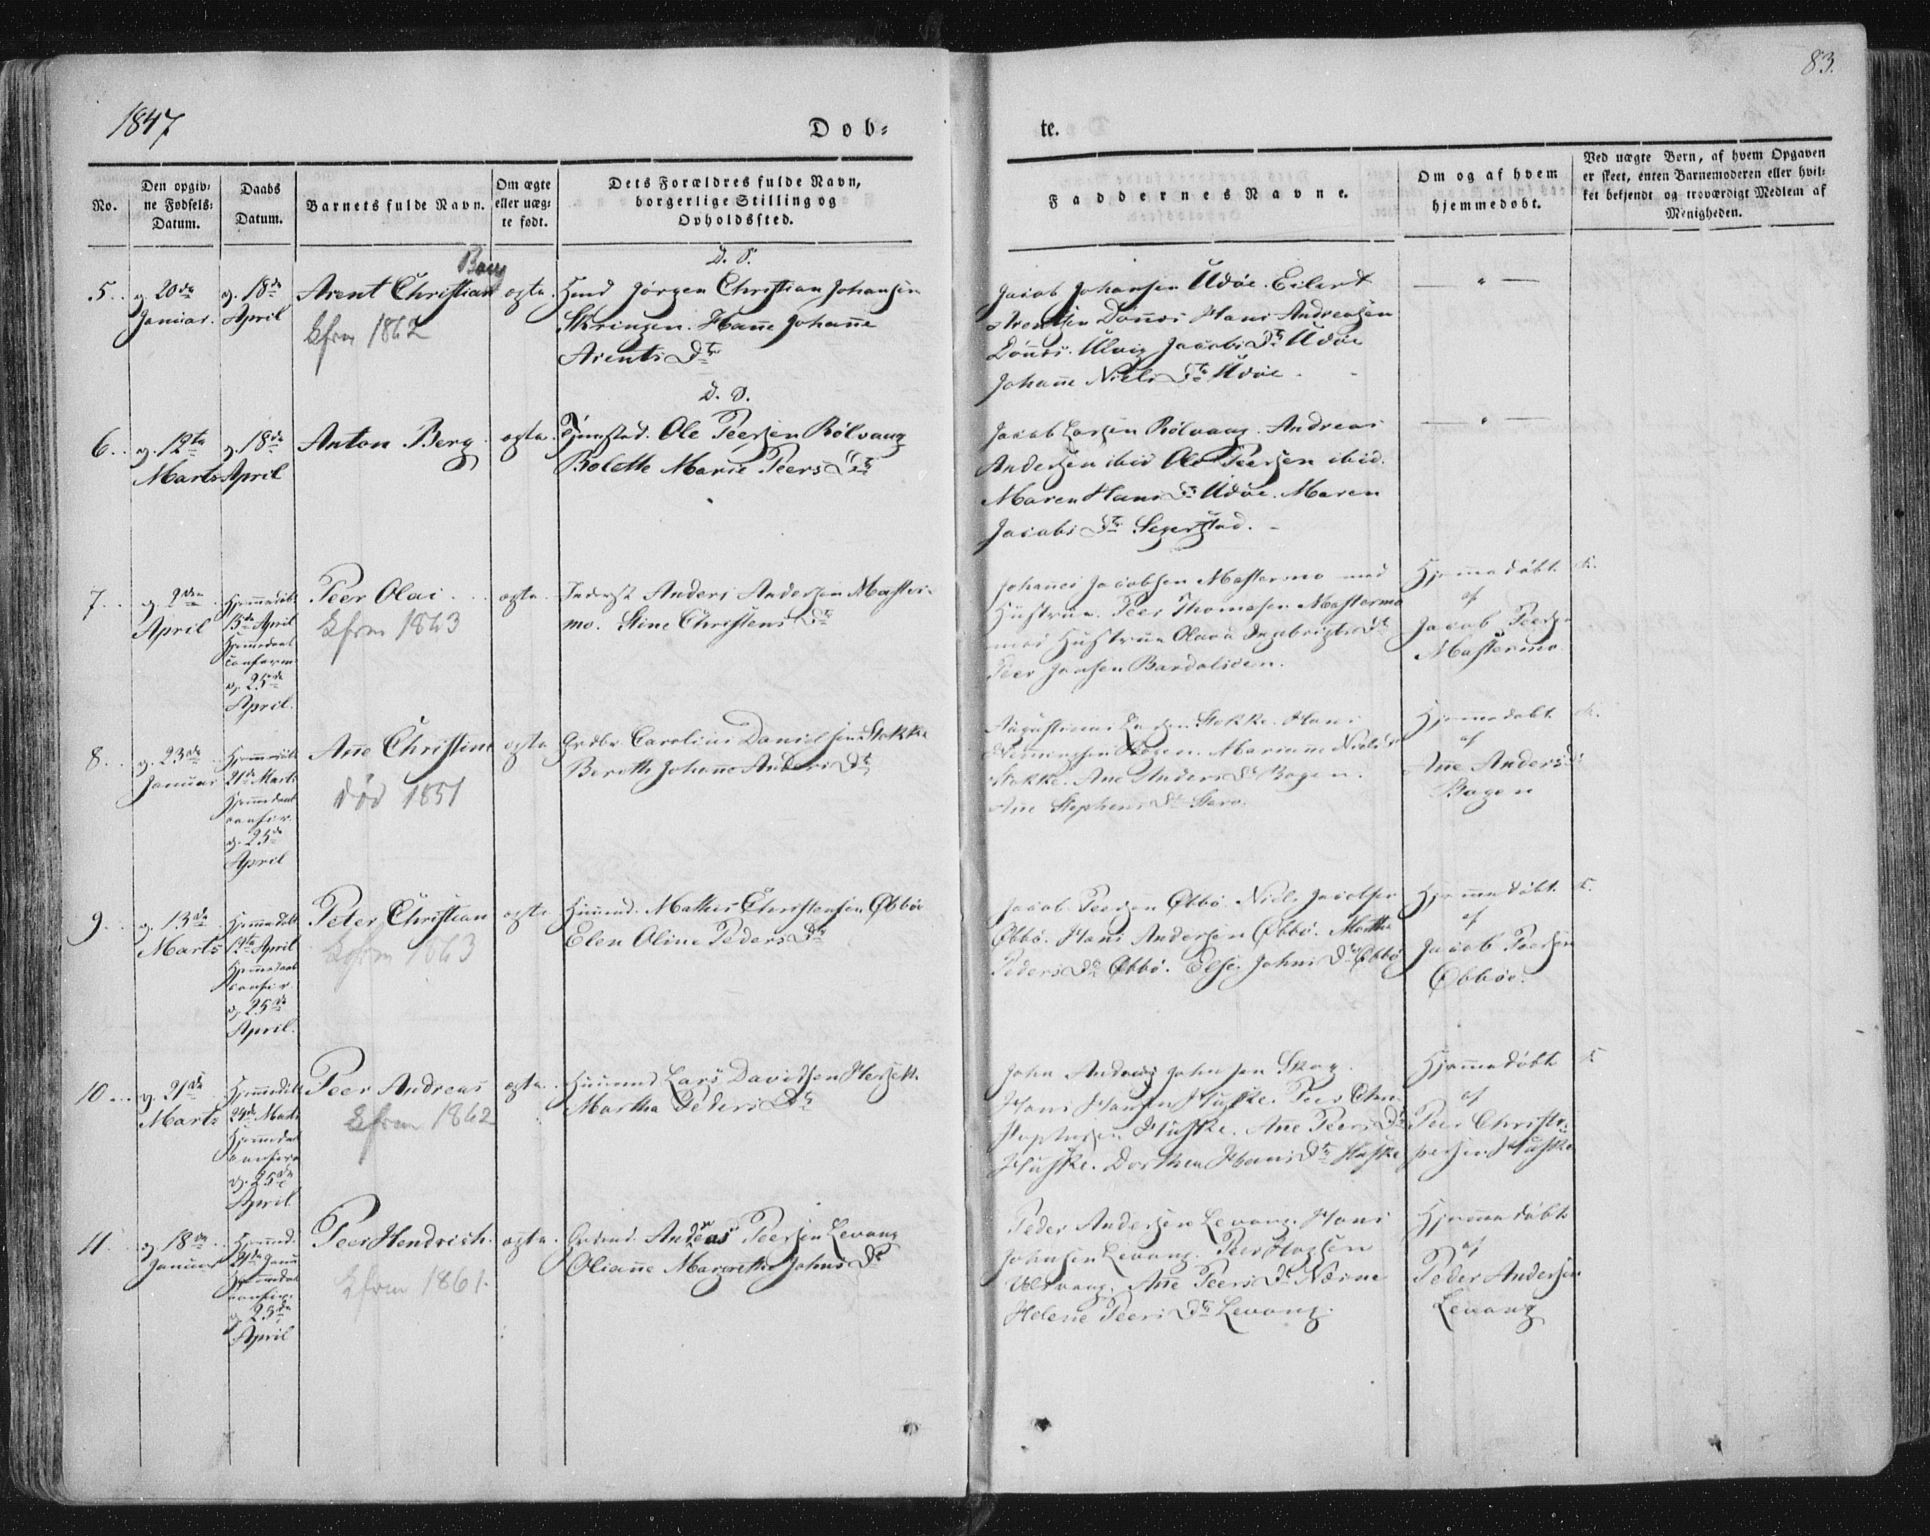 1847
Døb-
te.
83.
No.
Den opgiv-
ne Fødsels-
Datum.
Daabs
Datum.
Barnets fulde Navn.
Om ægte
eller uæg-
te født.
Dets Forældres fulde Navn,
borgerlige Stilling og
Opholdssted.
Faddernes Navne.
Om og af hvem
hjemmedøbt.
Ved uægte Børn, af hvem Opgaven
er skeet, enten Barnemoderen eller hvil-
ket bekjendt og troværdigt Medlem af
Menigheden.
5.
d. 20de
Januar.
d. 18de
April
Arent Christian
Kfrm 1862
ægte
D. S.
Jørgen Christian Johansen
Hanne Johanne
Arents Dtr
Jacob Johansen Udøe. Eilert
Arentsen Dønnes Hans Andreasen
Dønnes. Jacobs Dtr Udøe
Johanne Niels Dtr Udøe.
6.
d. 12te
Marts
d. 18de
April
Anton Berg
ægte.
D. S.
Ole Peersen Bølvang
Bolette Marie Peers Dtr
Jacob Larsen Bølvang. Andreas
Andersen ibid Ole Peersen ibid.
Maren Hans Dtr Udøe. Maren
Jacobs Dtr Segerstad.
7.
April
Hjemmedøbt
April
Hjemmedaab
confirm
d. 25de
April.
Peer Olai
Kfrm 1863
ægte.
Inderst Anders Andersen Mastermo.
Stine Christens Dtr
Johannes Jacobsen Mastermo med
Hustrue. Peer Thomasen Mastermo
med Hustrue Olava Ingebrigts Dtr
Peer Jansen Bardalsøen.
Hjemmedøbt
af
Jacob Peersen
Mastermo
8.
d. 23de
Januar
Hjemmedøbt
21de Marts
Hjemmedaab
confir.
d. 25de
April
Ane Christine
død 1851
ægte
Carolius Danielsen Stokke
Bereth Johanna Anders Dtr
Larsen Stokke. Hans
Bogen. Mariane Niels
Stokke. Ane Anders Dtr Bogen.
Ane Stephens Dtr
Hjemmedøbt
af
Ane Anders Dtr
Bogen
9.
d. 13de
Marts
Hjemmedøbt
April
Hjemmedaab
confir
d. 25de
April.
Peter Christian
Kfrm 1863
ægte
Huusmd. Mathis Christensen Øbbøe
Elen Oline Peders Dtr
Jacob Peersen Øbbø. Niels Jacobsen
Øbbø. Hans Andersen Øbbø. Martha
Peders Dtr Øbbø. Else Johns Dtr Øbbø
Hjemmedøbt.
af
Jacob Peersen
Øbbøe.
10.
d. 21de
Marts
Hjemmedøbt
Marts
Hjemmedaab
confirm
d. 25de
April
Peer Andreas
Kfrm 1862
ægte.
Huusmd Lars Davidsen
Martha Peders Dtr
John Andreas Johnsen Skog.
Hans Hansen Huske. Peer Chri-
stophersen Huske. Ane Peers Dtr
Huske. Dorthea Hans Dtr Huske
Hjemmedøbt
af
Peer Christo-
phersen Huske
11.
d. 18de
Januar
Hjemmd.
Hjemmedaab
confir.
d. 25de
April
Peer Hendrich.
Kfrm 1861.
ægte.
Andreas Peersen Levang
Oliane Margrethe Johns Dtr
Peder Andersen Levang. Hans
Johnsen Levang. Peer
Ane Peers Dtr
Helene Peers Dtr Levang.
Hjemmedøbt
af
Peder Andersen
Levang